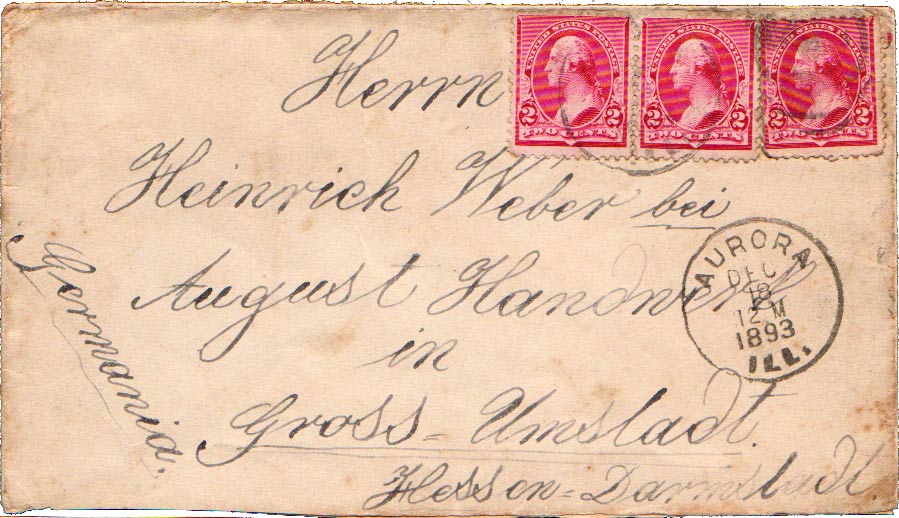 UNITED STATES POSTAGE
2 2
TWO CENTS
UNITED STATES POSTAGE
2 2
TWO CENTS
UNITED STATES POSTAGE
2 2
TWO CENTS
Herrn
Heinrich Weber bei
August Handwerk
in
Gross=Umstadt.
Hessen=Darmstadt.
Germania.
AURORA
DEC
18
12 M
1893
ILL.